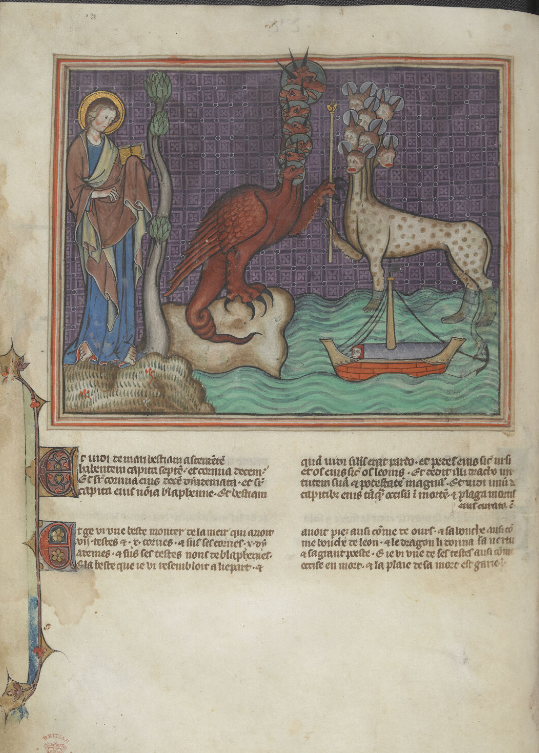 Et vidi de mari bestiam ascendentē
habentem capita septē · et cornua decem ·
Et sr̄ cornua eius decē dyademata · et sr̄
capita eius nōia blasphemie · Et bestiam
quā vidi silis erat pardo · et pedes eius sic̄ ursi
et os eius sic̄ os leonis · Et dedit illi draco vir
tutem suā et potestatē magnā · Et vidi unū de
capitibȝ eius occisū ī mortē · et plaga mortis
eius curata ē
Et ge vi vne beste monter de la mer qui auoit
vii · testes et · x · cornes · et sus ses cornes · x · dy
ademes · et sus ses testes nons de blasphemes ·
E la beste que ie vi resembloit a liepart · et
auoit piez ausi cōme de ours · et sa bouche ausi cō
me bouche de leon · et le dragon li donna sa vertu
et sa grant poste · E ie vi vne de ses testes ausi cōm
ocise en mort · et la plaie de sa mort est garie ·